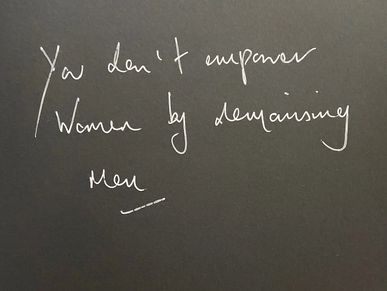 You don't empower
Women by demanising
Men